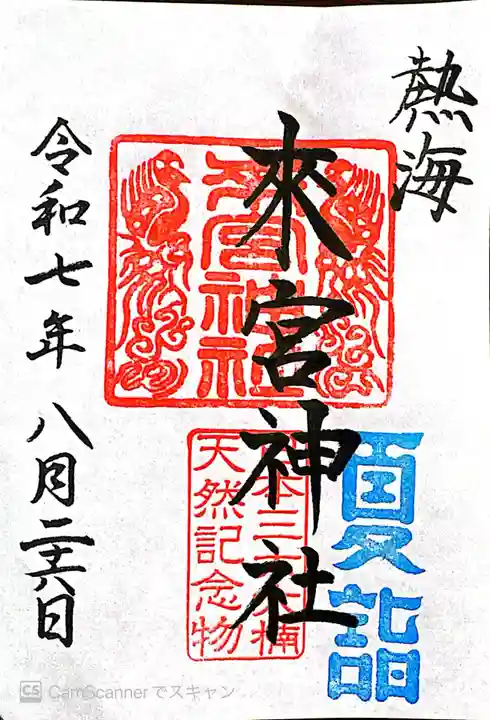 熱海
來宮神社
來宮神社
日本三大楠
天然記念物
夏詣
令和七年 八月二十六日
CS CamScannerでスキャン